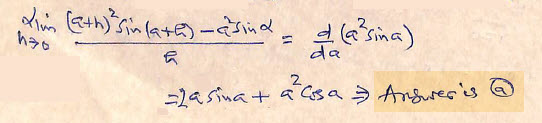 lim h→0 (a+h)² sin(a+h) − a² sin a / h = d/da (a² sin a)
= 2a sin a + a² cos a ⇒ Answer is ⓐ